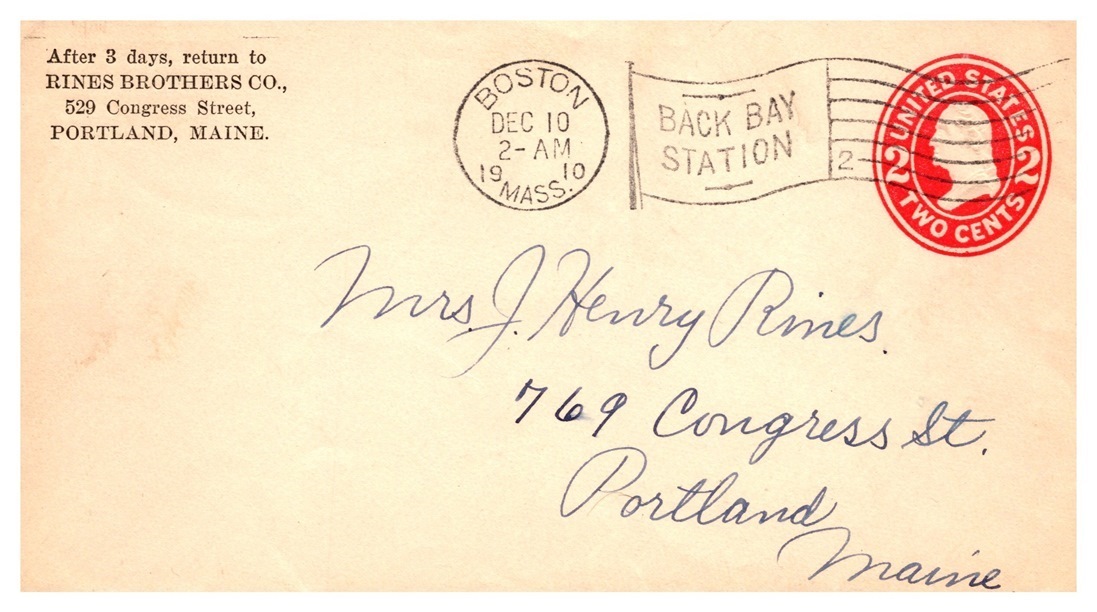 After 3 days, return to
RINES BROTHERS CO.,
529 Congress Street,
PORTLAND, MAINE.
BOSTON
DEC 10
2-AM
19 10
MASS.
BACK BAY
STATION
2
UNITED STATES
2 2
TWO CENTS
Mrs. J. Henry Rines.
769 Congress St.
Portland
Maine